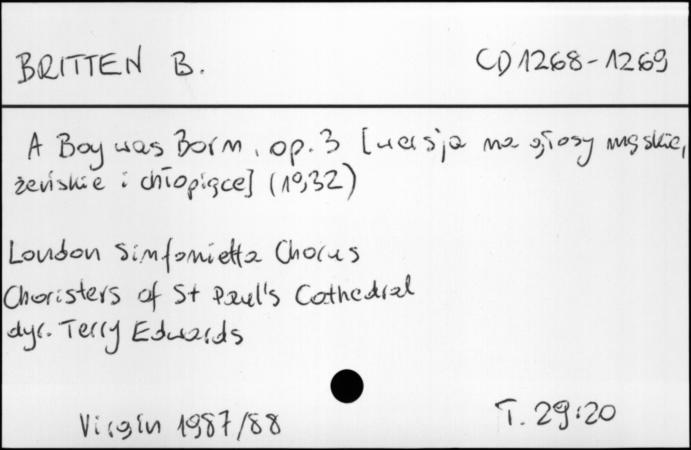 BRITTEN B. CD 1268-1269
A Boy was Born, op. 3 [wersja na głosy męskie,
żeńskie i chłopięce] (1932)
London Sinfonietta Chorus
Choristers of St Paul's Cathedral
dyr. Terry Edwards
Virgin 1987/88 T. 29:20